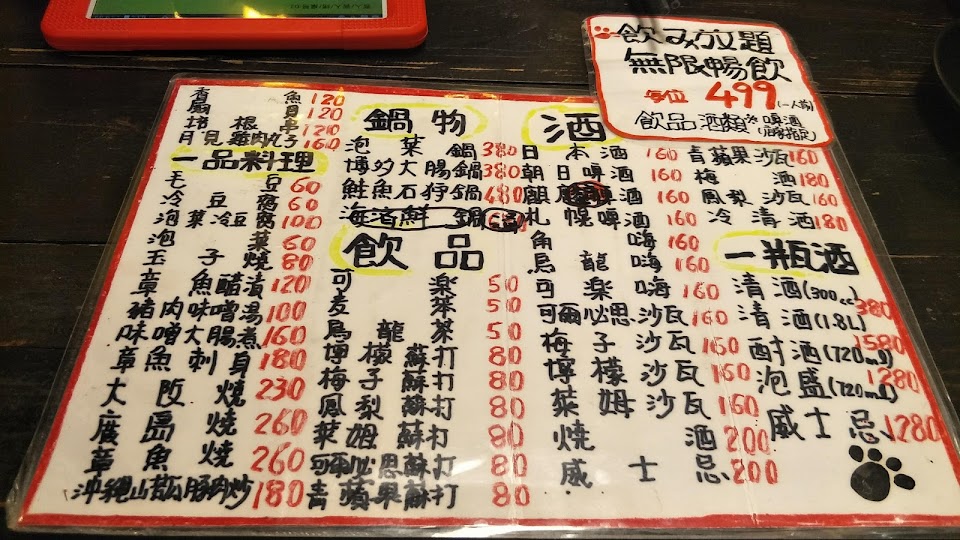 飲み放題
無限暢飲
每位 499 (一人前)
飲品 酒類※ 啤酒
香魚 120
扇貝 120
培根串 120
月見雞肉丸子 160
一品料理
毛豆 60
冷豆腐 60
泡菜冷豆腐 100
泡菜 60
玉子燒 80
章魚醋漬 120
豬肉味噌湯 100
味噌大腸煮 160
章魚刺身 180
大阪燒 230
廣島燒 260
章魚燒 260
沖繩山苦瓜豚肉炒 180
鍋物
泡菜鍋 380
博多大腸鍋 380
鮭魚石狩鍋 480
海鮮鍋
飲品
可樂 50
麥茶 50
烏龍茶 50
檸檬蘇打 80
梅子蘇打 80
鳳梨蘇打 80
萊姆蘇打 80
可爾必思蘇打 80
青蘋果蘇打 80
酒
日本酒 160
朝日啤酒 160
麒麟啤酒 160
札幌啤酒 160
角嗨 160
烏龍嗨 160
可樂嗨 160
可爾必思沙瓦 160
梅子沙瓦 160
檸檬沙瓦 160
萊姆沙瓦 160
燒酒 200
威士忌 200
青蘋果沙瓦 160
梅酒 180
鳳梨沙瓦 160
冷清酒 180
一瓶酒
清酒(300cc) 380
清酒(1.8L) 1580
酎酒(720ml) 1280
泡盛(720ml)
威士忌 1280